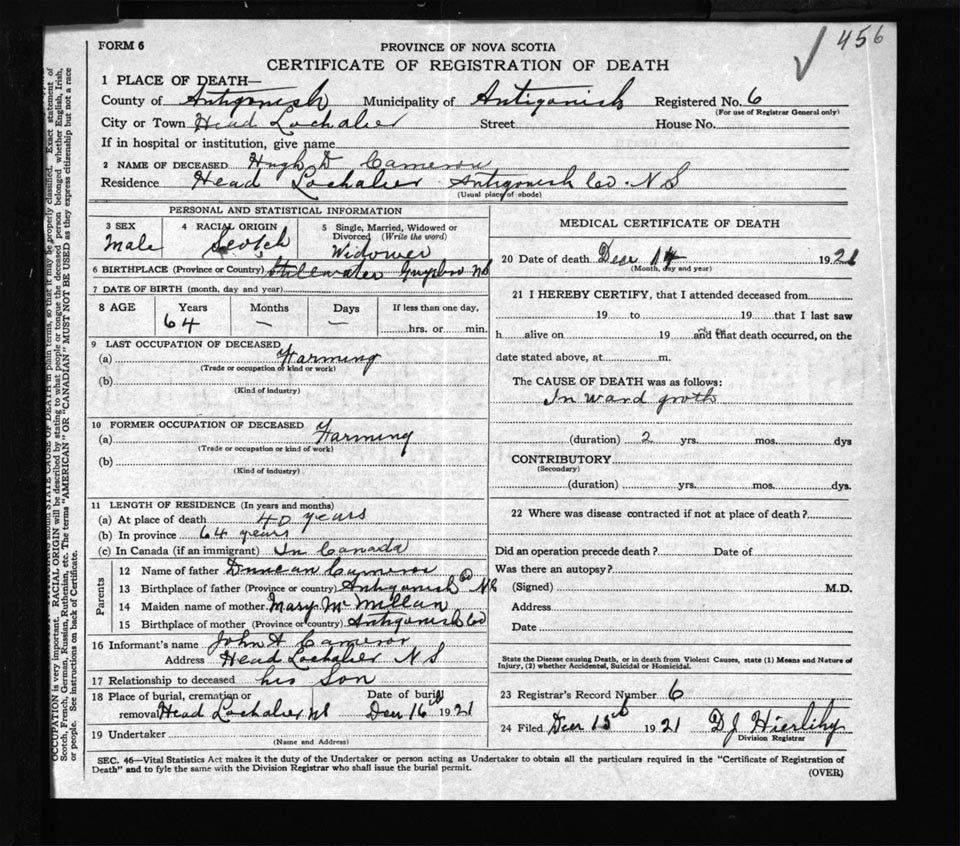 456
FORM 6
PROVINCE OF NOVA SCOTIA
CERTIFICATE OF REGISTRATION OF DEATH
1 PLACE OF DEATH—
County of Antigonish Municipality of Antigonish Registered No. 6
(For use of Registrar General only)
City or Town Head Lochaber Street House No.
If in hospital or institution, give name
2 NAME OF DECEASED Hugh D Cameron
Residence Head Lochaber Antigonish Co. N S
(Usual place of abode)
PERSONAL AND STATISTICAL INFORMATION
3 SEX 4 RACIAL ORIGIN 5 Single, Married, Widowed or Divorced (Write the word)
Male Scotch Widower
6 BIRTHPLACE (Province or Country) Stillwater Guysboro NS
7 DATE OF BIRTH (month, day and year)
8 AGE Years Months Days If less than one day,
64 — — hrs. or min.
9 LAST OCCUPATION OF DECEASED
(a) Farming
(Trade or occupation or kind or work)
(b)
(Kind of industry)
10 FORMER OCCUPATION OF DECEASED
(a) Farming
(Trade or occupation or kind of work)
(b)
(Kind of industry)
11 LENGTH OF RESIDENCE (In years and months)
(a) At place of death 40 years
(b) In province 64 years
(c) In Canada (if an immigrant) In Canada
Parents
12 Name of father Duncan Cameron
13 Birthplace of father (Province or country) Antigonish Co NS
14 Maiden name of mother Mary McMillan
15 Birthplace of mother (Province or country) Antigonish Co
16 Informant's name John A Cameron
Address Head Lochaber N S
17 Relationship to deceased his Son
18 Place of burial, cremation or removal Head Lochaber NS Date of burial Decr 16th 1921
19 Undertaker
(Name and Address)
MEDICAL CERTIFICATE OF DEATH
20 Date of death Decr 14 1921
(Month, day and year)
21 I HEREBY CERTIFY, that I attended deceased from
19 to 19 that I last saw
h alive on 19 and that death occurred, on the
date stated above, at m.
The CAUSE OF DEATH was as follows:
In ward groth
(duration) 2 yrs. mos. dys
CONTRIBUTORY
(Secondary)
(duration) yrs. mos. dys.
22 Where was disease contracted if not at place of death?
Did an operation precede death? Date of
Was there an autopsy?
(Signed) M.D.
Address
Date
State the Disease causing Death, or in death from Violent Causes, state (1) Means and Nature of
Injury, (2) whether Accidental, Suicidal or Homicidal.
23 Registrar's Record Number 6
24 Filed Decr 15th 1921 D J Hierlihy
Division Registrar
SEC. 46—Vital Statistics Act makes it the duty of the Undertaker or person acting as Undertaker to obtain all the particulars required in the "Certificate of Registration of
Death" and to fyle the same with the Division Registrar who shall issue the burial permit.
(OVER)
STATE CAUSE OF DEATH in plain terms, so that it may be properly classified. Exact statement of
OCCUPATION is very important. RACIAL ORIGIN will be described by stating to what people or tongue the deceased person belonged whether English, Irish,
Scotch, French, German, Russian, Ruthenian, etc. The terms "AMERICAN" OR "CANADIAN" MUST NOT BE USED as they express citizenship but not a race
or people. See instructions on back of Certificate.